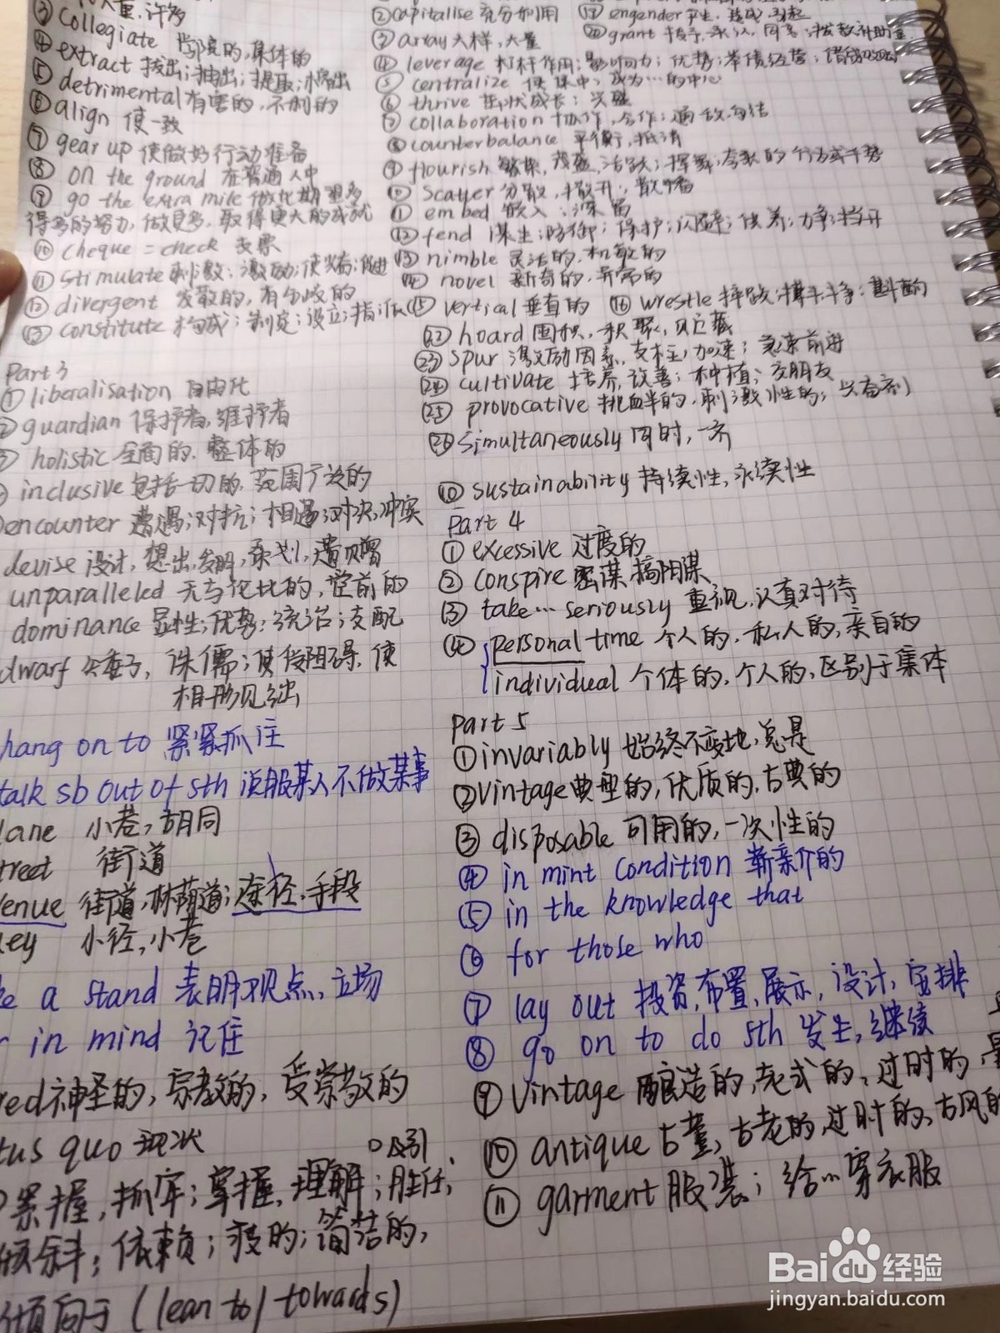 ③ collegiate 学院的，集体的
④ extract 拔出；抽出；提取；榨出
⑤ detrimental 有害的，不利的
⑥ align 使一致
⑦ gear up 使做好行动准备
⑧ on the ground 在普通人中
⑨ go the extra mile
得多的努力，做更多，取得更大的成就
⑩ cheque = check 支票
⑪ stimulate 刺激；激励；使
⑫ divergent 发散的，有分歧的
⑬ constitute 构成；制定；设立；指派
Part 3
① liberalisation 自由化
② guardian 保护者，维护者
③ holistic 全面的，整体的
inclusive 包括一切的，范围广泛的
encounter 遭遇；对抗；相遇；对决，冲突
devise 设计，想出，发明，策划，遗赠
unparalleled 无与伦比的，空前的
dominance 显性；优势；统治；支配
dwarf 侏儒；使发育阻碍，使
相形见绌
hang on to 紧紧抓住
talk sb out of sth 说服某人不做某事
lane 小巷，胡同
treet 街道
venue 街道，林荫道；途径，手段
ley 小径，小巷
ke a stand 表明观点、立场
r in mind 记住
red 神圣的，宗教的，受崇敬的
tus quo 现状
紧握，抓牢；掌握，理解；胜任，
吸引，
倾斜；依赖；瘦的；简洁的，
倾向于 (lean to / towards)
② capitalise 充分利用
③ array 大样，大量
④ leverage 杠杆作用；影响力；优势；举债经营；
⑤ centralize 使集中；成为…的中心
⑥ thrive 茁壮成长；兴盛
⑦ collaboration 协作，合作；通敌，勾结
⑧ counterbalance 平衡，抵消
⑨ flourish 繁荣，茂盛，活跃；挥舞；夸张的行为或手势
⑩ scatter 分散，撒开；散播
⑪ embed 嵌入；深留
⑫ fend 谋生；防御；保护；闪避；供养；力争；挡开
⑬ nimble 灵活的，机敏的
⑭ novel 新奇的，异常的
⑮ vertical 垂直的 ⑯ wrestle 摔跤；搏斗；斗争；
⑲ engender 产生，造成，引起
⑳ grant 授予，承认，同意；拨款，补助金
㉒ hoard 囤积，积聚，贮藏
㉓ spur 激励因素，支柱；加速；急速前进
㉔ cultivate 培养，改善；种植；交朋友
㉕ provocative 挑衅的，刺激性的；兴奋剂
㉖ simultaneously 同时，一齐
⑩ sustainability 持续性，永续性
Part 4
① excessive 过度的
② conspire 密谋，搞阴谋
③ take … seriously 重视，认真对待
④ personal time 个人的，私人的，亲自的
individual 个体的，个人的，区别于集体
Part 5
① invariably 始终不变地，总是
② vintage 典型的，优质的，古典的
③ disposable 可用的，一次性的
④ in mint condition 崭新的
⑤ in the knowledge that
⑥ for those who
⑦ lay out 投资，布置，展示，设计，安排
⑧ go on to do sth 发生，继续
⑨ vintage 酿造的，老式的，过时的，
⑩ antique 古董，古老的，过时的，古风的
⑪ garment 服装；给…穿衣服
Baidu 经验
jingyan.baidu.com